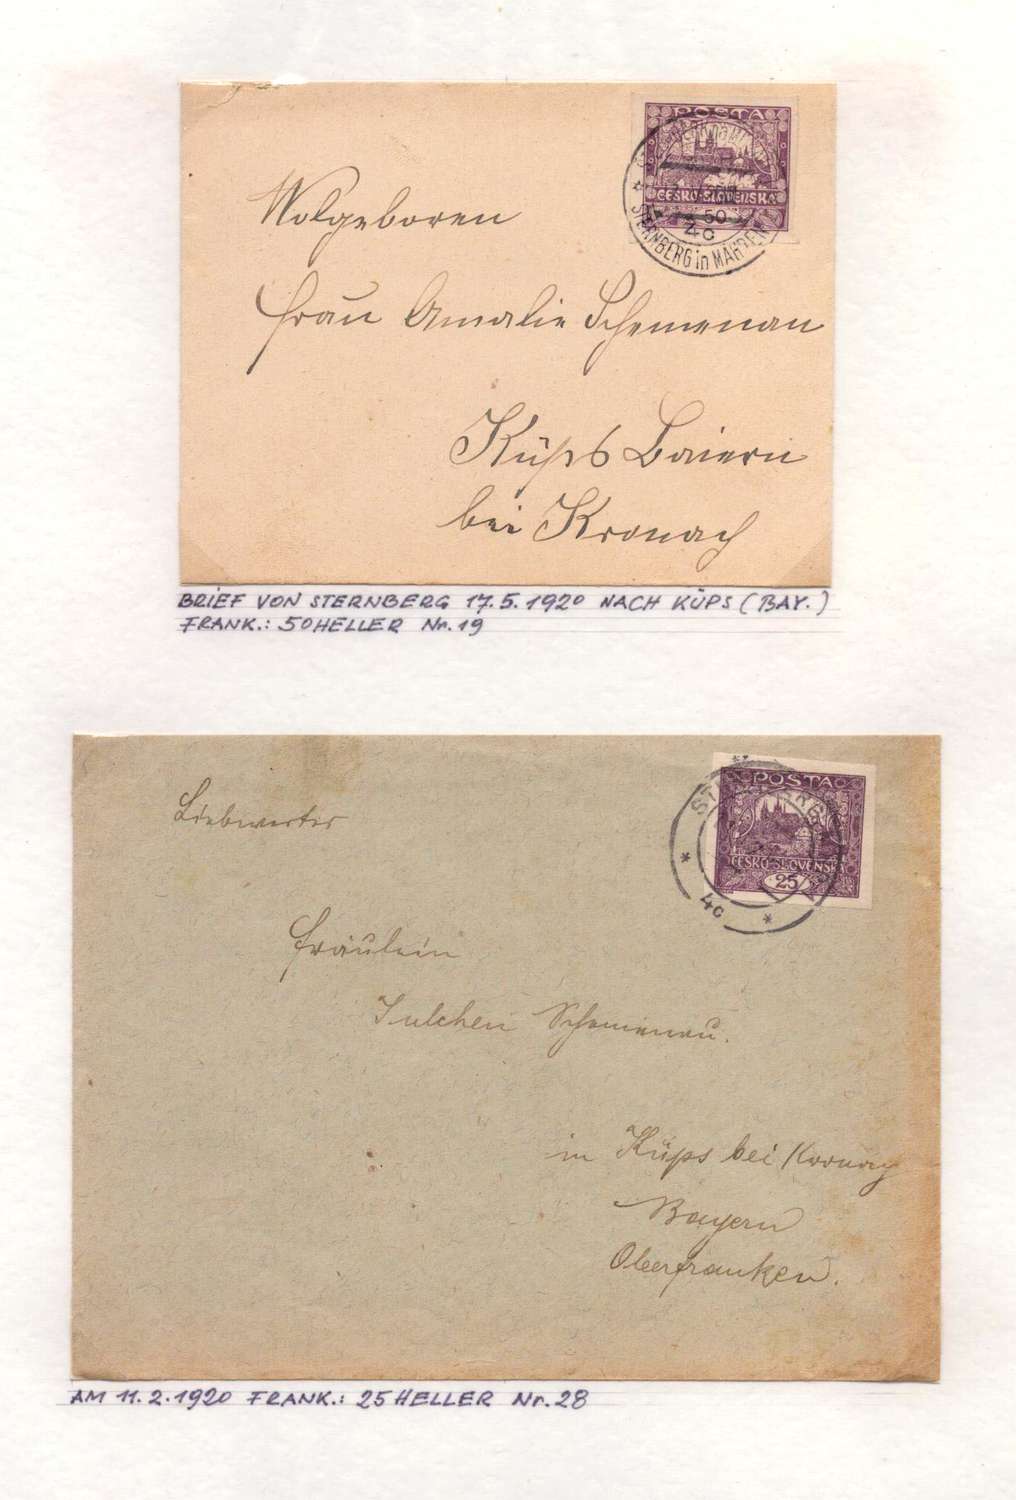 POSTA
ČESKO-SLOVENSKÁ
50
4c
STERNBERG in MÄHREN
Wolgeboren
Frau Amalie Schemenau
Küps Baiern
bei Kronach
BRIEF VON STERNBERG 17.5.1920 NACH KÜPS (BAY.)
FRANK.: 50HELLER Nr. 19
POSTA
ČESKO-SLOVENSKÁ
25
4c
Fräulein
Julchen Schemenau.
in Küps bei Kronach
Bayern
Oberfranken.
AM 11.2.1920 FRANK.: 25HELLER Nr. 28